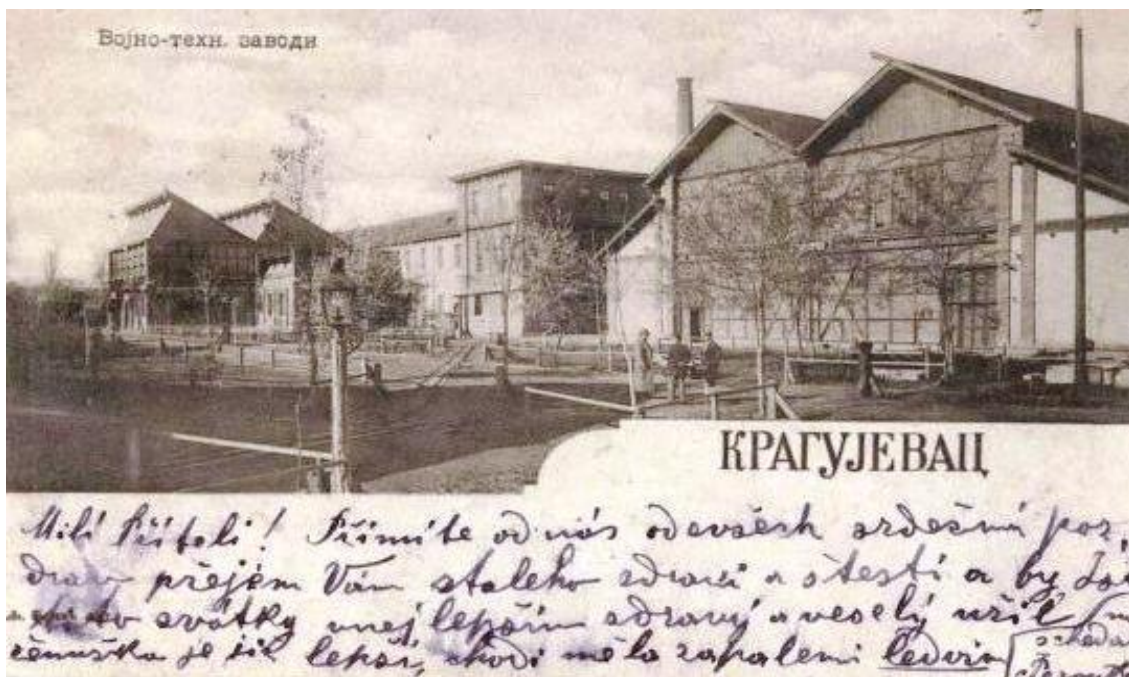 Војно-техн. заводи
КРАГУЈЕВАЦ
Milí Příteli! Přimnite od nás odevšech srdešní poz,
draw přejem Vám staleho zdraví a štestí a by
svátky vnejlepšim zdravý a veselý užil
je již lepsi, chodi měla zapaleni ledvin